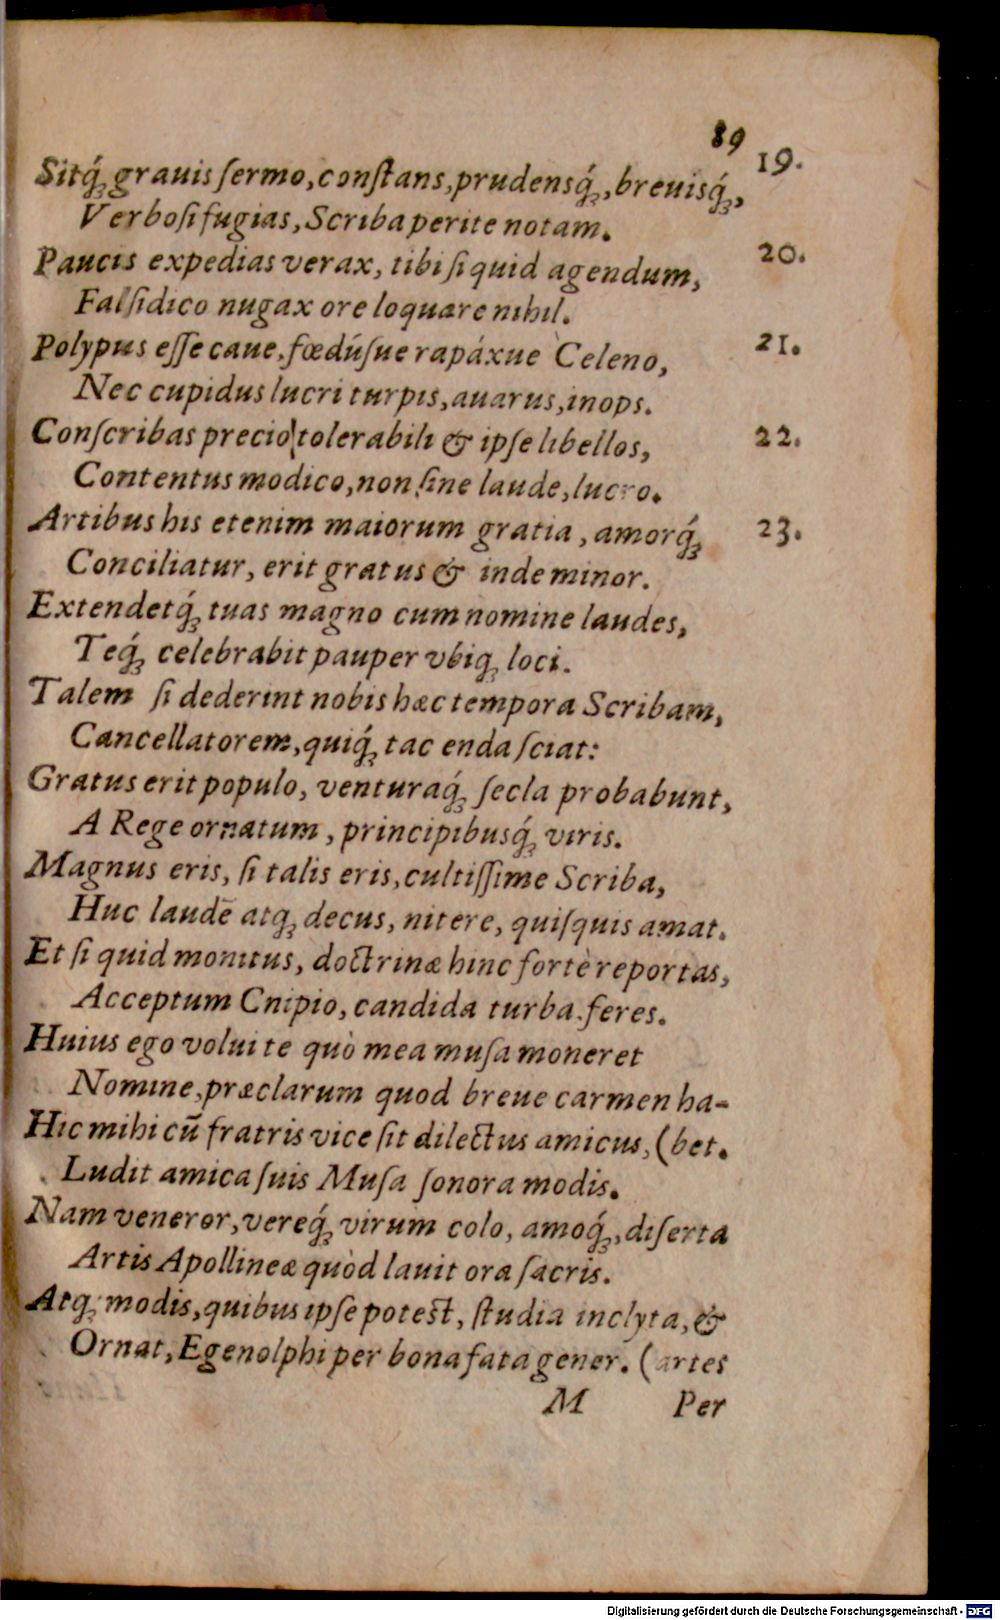 89
Sitq́ꝫ grauis ſermo, conſtans, prudensq́ꝫ, breuisq́ꝫ, 19.
Verboſi fugias, Scriba perite notam.
Paucis expedias verax, tibi ſi quid agendum, 20.
Falſidico nugax ore loquare nihil.
Polypus eſſe caue, fœdúſue rapáxue Celeno, 21.
Nec cupidus lucri turpis, auarus, inops.
Conſcribas precio tolerabili & ipſe libellos, 22.
Contentus modico, non ſine laude, lucro.
Artibus his etenim maiorum gratia, amorq́ꝫ 23.
Conciliatur, erit gratus & inde minor.
Extendetq́ꝫ tuas magno cum nomine laudes,
Teq́ꝫ celebrabit pauper vbiqꝫ loci.
Talem ſi dederint nobis hæc tempora Scribam,
Cancellatorem, quiq́ꝫ tac enda ſciat:
Gratus erit populo, venturaq́ꝫ ſecla probabunt,
A Rege ornatum, principibusq́ꝫ viris.
Magnus eris, ſi talis eris, cultiſſime Scriba,
Huc laudē atqꝫ decus, nitere, quiſquis amat.
Et ſi quid monitus, doctrinæ hinc fortè reportas,
Acceptum Cnipio, candida turba feres.
Huius ego volui te quò mea muſa moneret
Nomine, præclarum quod breue carmen ha-
Hic mihi cū fratris vice ſit dilectus amicus, (bet.
Ludit amica ſuis Muſa ſonora modis.
Nam veneror, vereq́ꝫ virum colo, amoq́ꝫ, diſerta
Artis Apollineæ quòd lauit ora ſacris.
Atqꝫ modis, quibus ipſe poteſt, ſtudia inclyta, &
Ornat, Egenolphi per bona fata gener. (artes
M Per
Digitalisierung gefördert durch die Deutsche Forschungsgemeinschaft - DFG